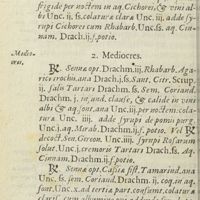 frigide per noctem in aq. Cichorei, & vini al-
bi Unc. ij. ss. colaturæ claræ Unc. iiij. adde syru-
pi Cichorei cum Rhabarb. Unc. ss. aq. Cin-
nam. Drach. ij. f. potio.
Medio-
cres.
2. Mediocres.
℞. Sennæ opt. Drachm. iij. Rhabarb. Aga-
rici trochis. ana Drach. j. ss. Sant. Citr. Scrup.
ij. salis Tartari Drachm. ss. Sem. Coriand.
Drachm. j. in, ind. clause, & calide in vini
albi & aq. font. ana Unc. iij. per noctem. cola-
turæ Unc. iij. adde syrupi de pomis purg.
Unc. j. aq. Mirab. Drachm. ij. f. potio. Vel ℞
decoct. Sen. Gereon. Unc. iiij. syrupi Rosarum
solut. Unc. j. cremoris Tartari Drach. ss. Aq.
Cinnam. Drachm. ij. f. potio.
℞. Sennæ opt. Cassiæ fist. Tamarind. ana
Unc. ss. sem. Coriand. Drachm. ij. coq. in aq.
font. Unc. x. ad tertiæ part. consumt. colaturæ